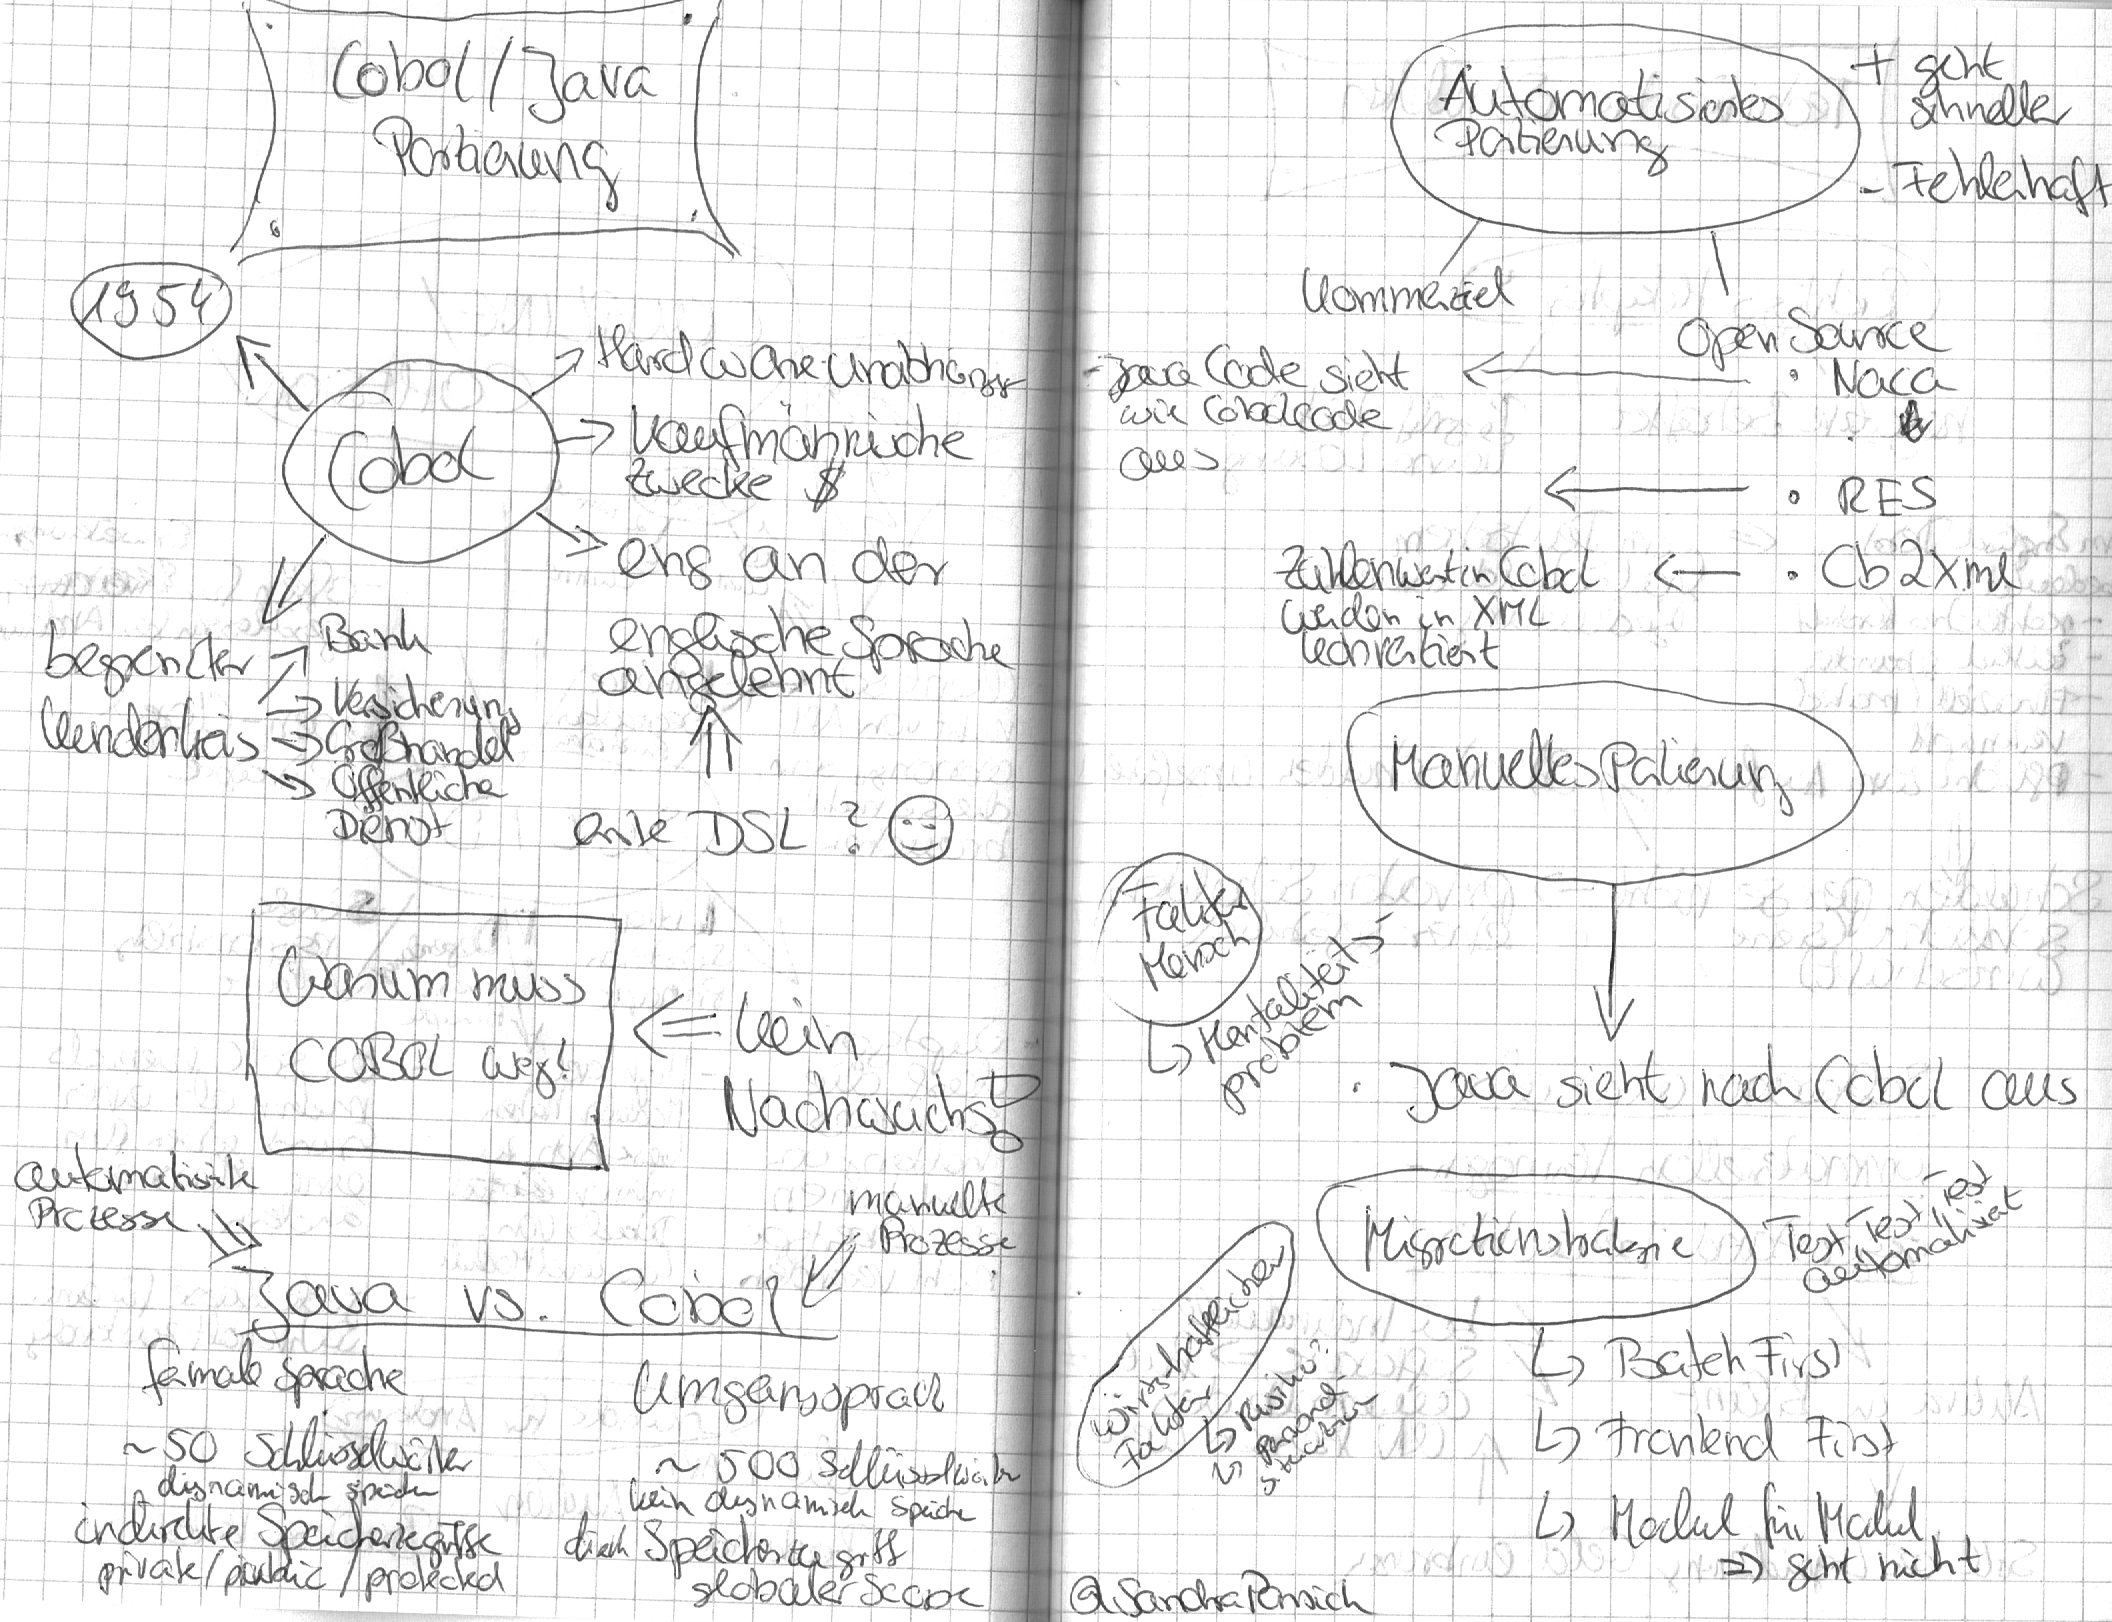 Cobol / Java
Portierung
1954
Cobol
Hardwareunabhängig
Kaufmännische
Zwecke $
eng an der
englische Sprache
angelehnt
erste DSL ?
begrenzter
Kundenkreis
Bank
Versicherung
Großhandel
Öffentliche
Dienst
Warum muss
COBOL weg!
kein
Nachwuchs!
automatisierte
Prozesse
manuelle
Prozesse
Java vs. Cobol
formale Sprache
~ 50 Schlüsselwörter
dynamisch speicher
indirekte Speicherzugriffe
private / public / protected
Umgangssprach
~ 500 Schlüsselwörter
kein dynamisch Speiche
direkt Speicherzugriff
globaler Scope
Automatisiertes
Portierung
+ geht
schneller
- Fehlerhaft
Kommerziel
Open Source
• Naca
- Java Code sieht
wie Cobolcode
aus
• RES
• Cb2Xml
Zahlenwert in Cobol
werden in XML
konvertiert
Manuelles Portierung
Faktor
Mensch
Mentalitäts-
problem
• Java sieht nach Cobol aus
Migrationstrategie
Test, Test, Test
automatisiert
Wirtschaftlichen
Faktor
Risiko?
Personal-
situation
Batch First
Frontend First
Modul für Modul
=> geht nicht
@SandraParsick